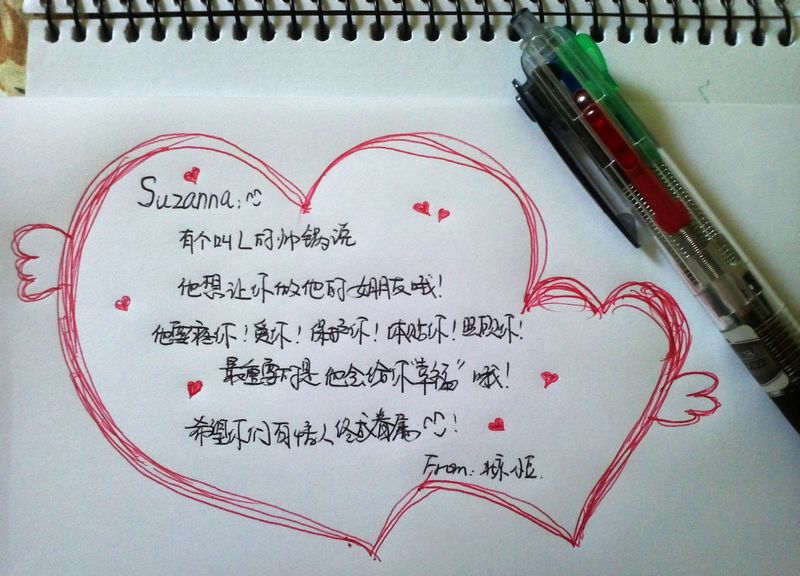 Suzanna:
有个叫L的帅锅说
他想让你做他的女朋友哦!
他要疼你!爱你!保护你!体贴你!照顾你!
最重要的是他会给你"幸福"哦!
希望你们有情人终成眷属!
From: